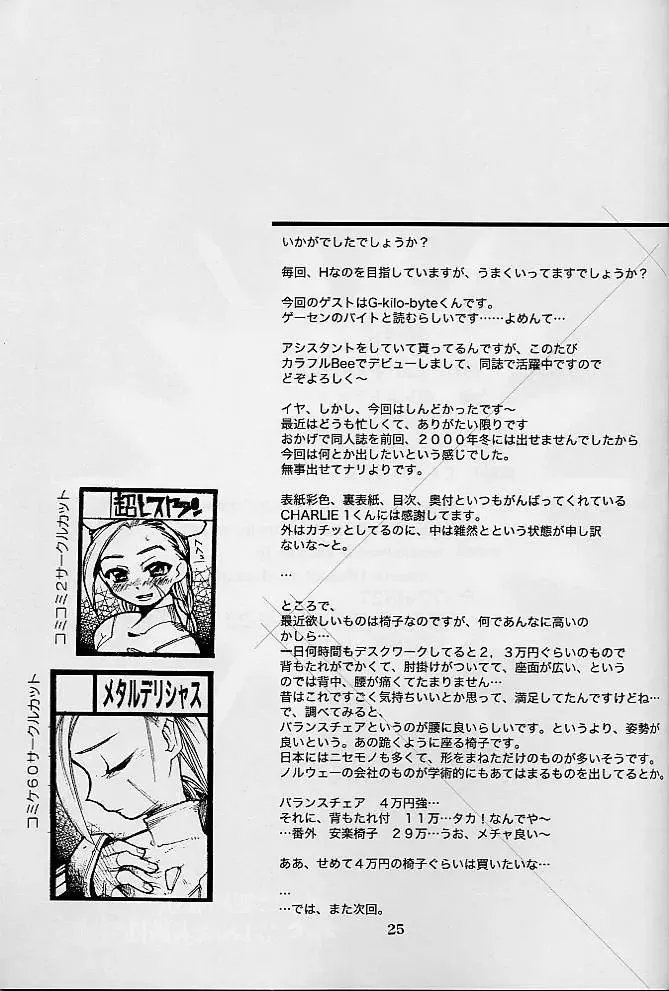 いかがでしたでしょうか?
毎回、Hなのを目指していますが、うまくいってますでしょうか?
今回のゲストはG-kilo-byteくんです。
ゲーセンのバイトと読むらしいです……よめんて…
アシスタントをしていて貰ってるんですが、このたび
カラフルBeeでデビューしまして、同誌で活躍中ですので
どぞよろしく〜
イヤ、しかし、今回はしんどかったです〜
最近はどうも忙しくて、ありがたい限りです
おかげで同人誌を前回、2000年冬には出せませんでしたから
今回は何とか出したいという感じでした。
無事出せてナリよりです。
表紙彩色、裏表紙、目次、奥付といつもがんばってくれている
CHARLIE 1くんには感謝してます。
外はカチッとしてるのに、中は雑然とという状態が申し訳
ないな〜と。
…
ところで、
最近欲しいものは椅子なのですが、何であんなに高いの
かしら…
一日何時間もデスクワークしてると2,3万円ぐらいのもので
背もたれがでかくて、肘掛けがついてて、座面が広い、という
のでは背中、腰が痛くてたまりません…
昔はこれですごく気持ちいいとか思って、満足してたんですけどね…
で、調べてみると、
バランスチェアというのが腰に良いらしいです。というより、姿勢が
良いという。あの跪くように座る椅子です。
日本にはニセモノも多くて、形をまねただけのものが多いそうです。
ノルウェーの会社のものが学術的にもあてはまるものを出してるとか。
バランスチェア 4万円強…
それに、背もたれ付 11万…タカ!なんでや〜
…番外 安楽椅子 29万…うお、メチャ良い〜
ああ、せめて4万円の椅子ぐらいは買いたいな…
…
…では、また次回。
コミコミ2サークルカット
超レストラン
コミケ60サークルカット
メタルデリシャス
25